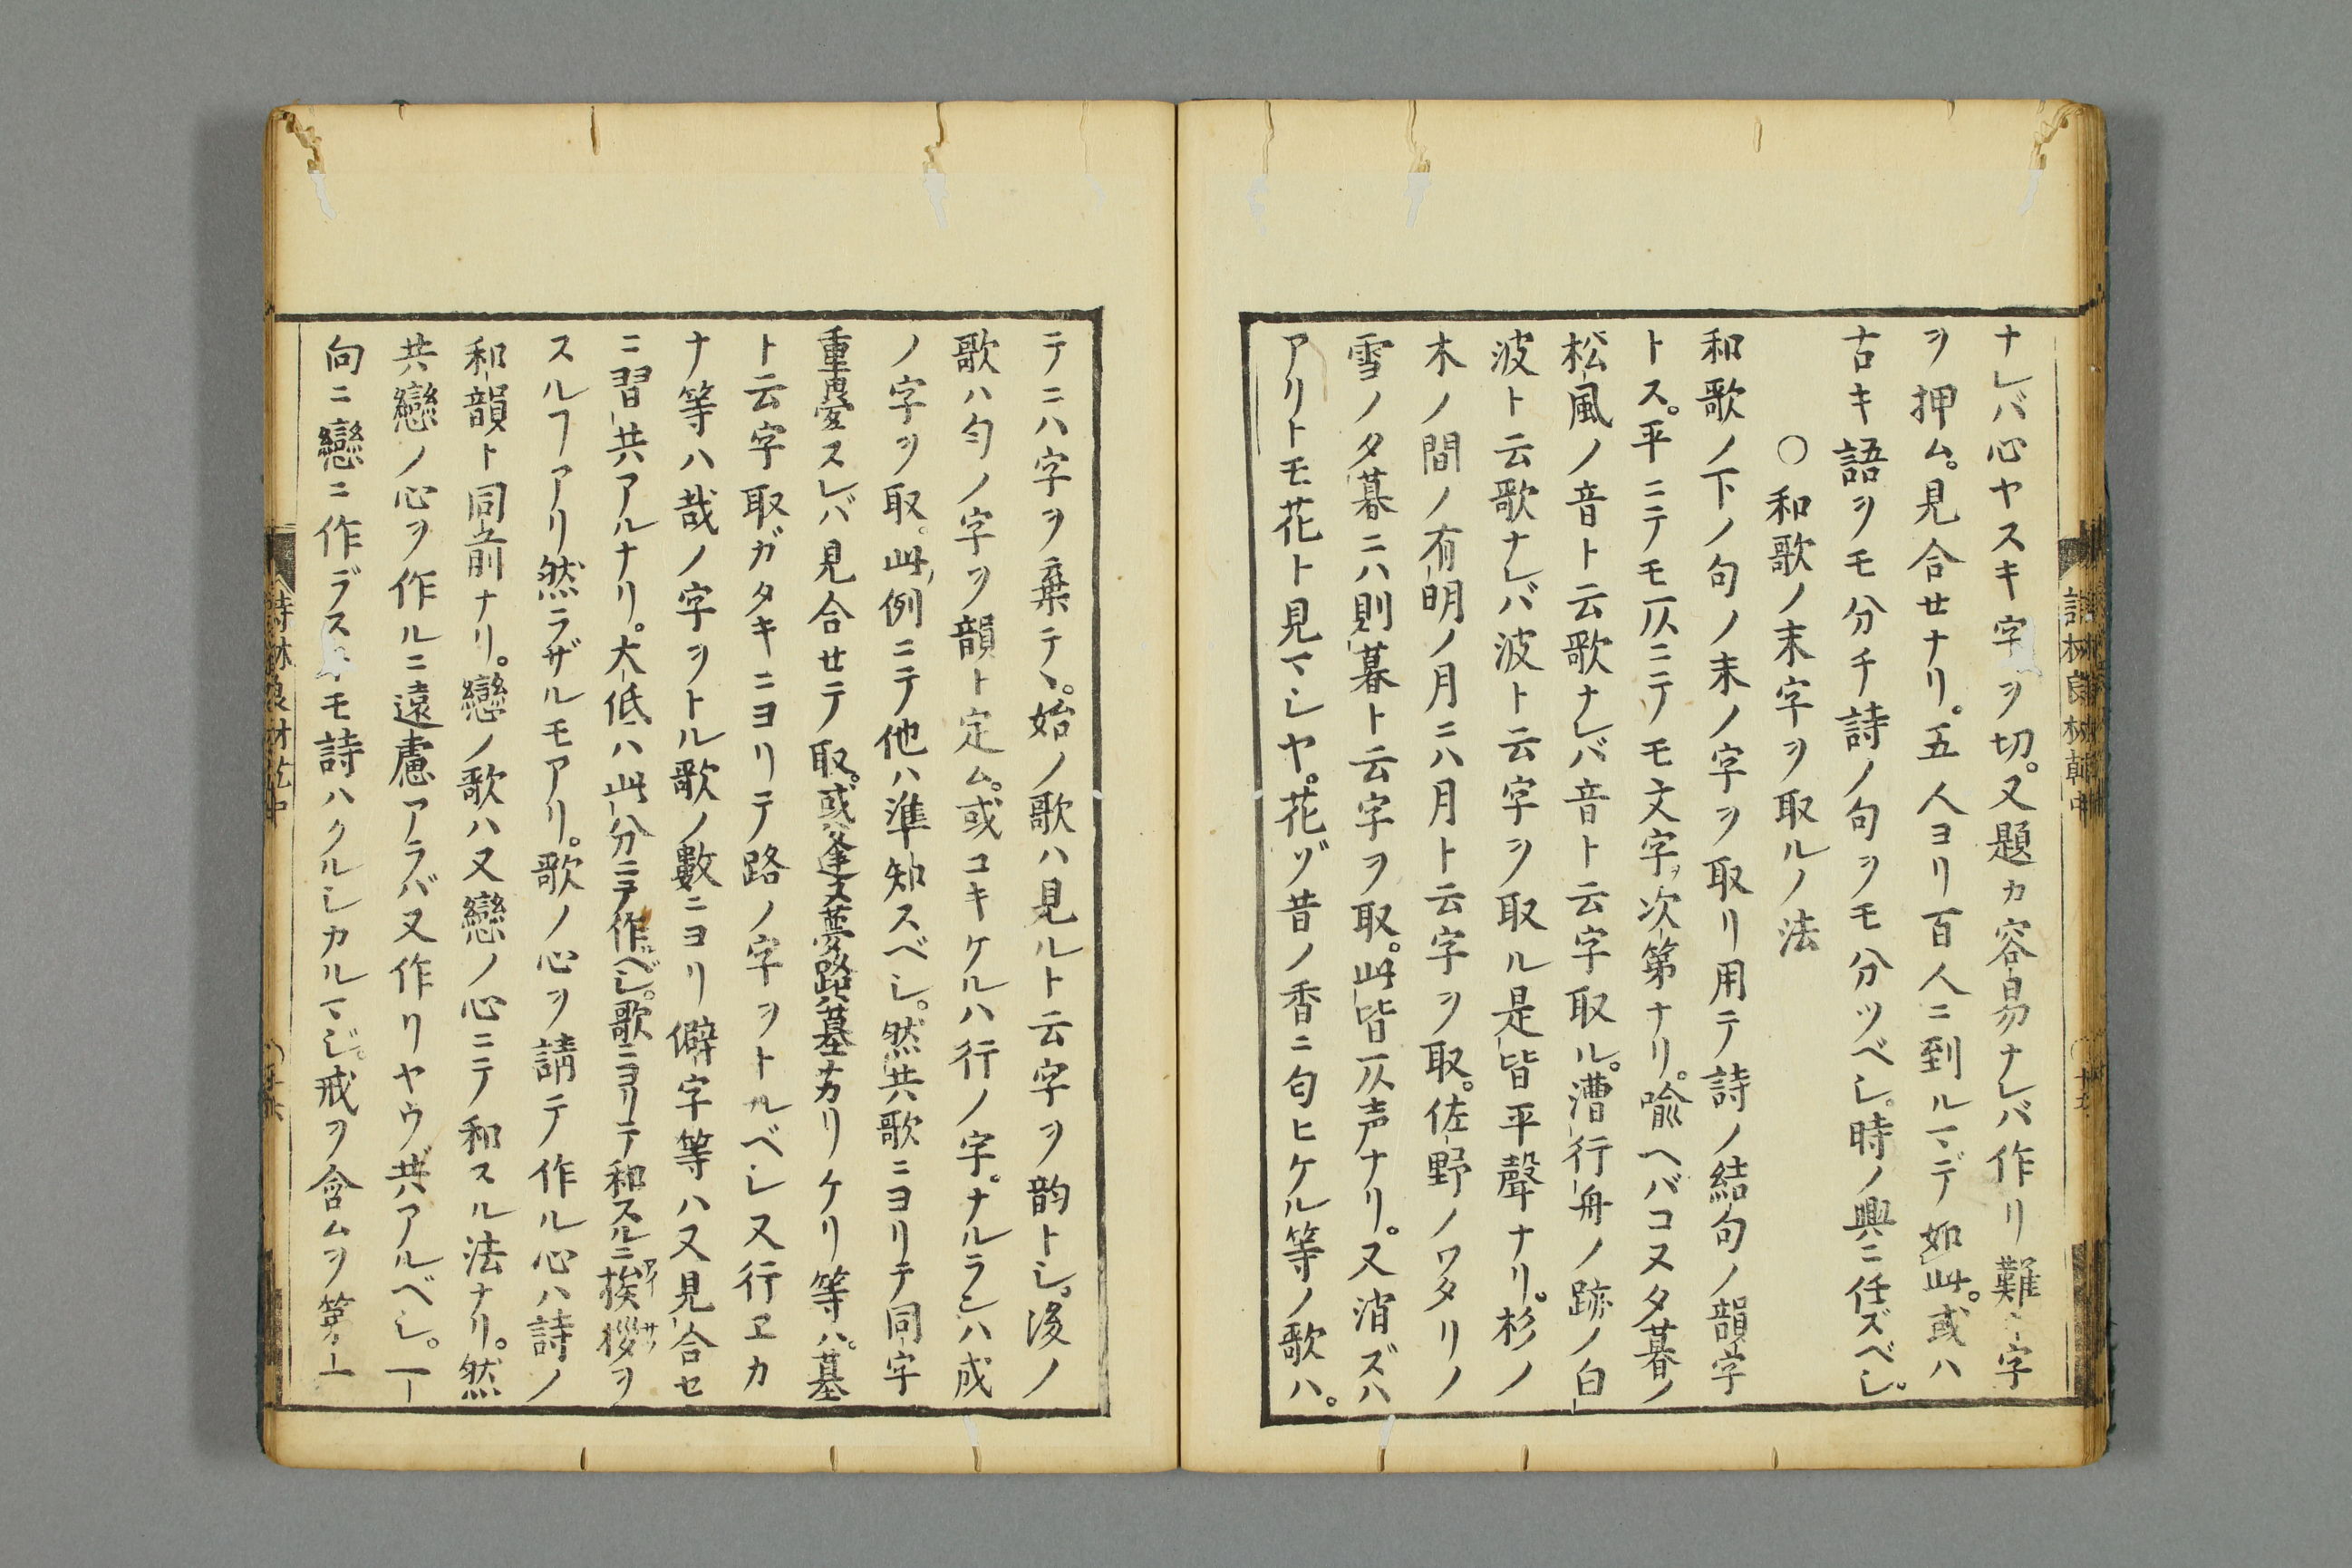 ナレバ心ヤスキ字ヲ切。又題カ容易ナレバ作リ難キ字
ヲ押ム。見合セナリ。五人ヨリ百人ニ到ルマデ如此。或ハ
古キ語ヲモ分チ詩ノ句ヲモ分ツベシ。時ノ興ニ任ズベシ。
○和歌ノ末字ヲ取ルノ法
和歌ノ下ノ句ノ末ノ字ヲ取リ用テ詩ノ結句ノ韻字
トス。平ニテモ仄ニテモ文字ヲ次第ナリ。喩ヘバコヌタ暮ノ
松風ノ音ト云歌ナレバ音ト云字取ル。漕行舟ノ跡ノ白
波ト云歌ナレバ波ト云字ヲ取ル是皆平聲ナリ。杉ノ
木ノ間ノ有明ノ月ニハ月ト云字ヲ取。佐野ノワタリノ
雪ノタ暮ニハ則暮ト云字ヲ取。此皆仄声ナリ。又消ズハ
アリトモ花ト見マシヤ。花ゾ昔ノ香ニ匂ヒケル等ノ歌ハ。
テニハ字ヲ棄テヽ。始ノ歌ハ見ルト云字ヲ韵トシ。後ノ
歌ハ匂ノ字ヲ韻ト定ム。或コキケルハ行ノ字。ナルラシハ成
ノ字ヲ取。此例ニテ他ハ準知スベシ。然共歌ニヨリテ同字
重疊スレバ見合セテ取。或逢又夢路墓カリケリ等ハ。墓
ト云字取ガタキニヨリテ路ノ字ヲトルベシ又行ヱカ
ナ等ハ哉ノ字ヲトル歌ノ數ニヨリ僻字等ハ又見合セ
ニ習共アルナリ。大低ハ此分ニテ作ベシ。歌ニヨリテ和スルニ挨拶ヲ
スルヿアリ然ラザルモアリ。歌ノ心ヲ請テ作ル心ハ詩ノ
和韻ト同前ナリ。戀ノ歌ハ又戀ノ心ニテ和スル法ナリ。然
共戀ノ心ヲ作ルニ遠慮アラバ又作リヤウ共アルベシ。一
向ニ戀ニ作デストモ詩ハクルシカルマジ。戒ヲ含ムヲ第一
詩林良材乾中
詩林良材乾中